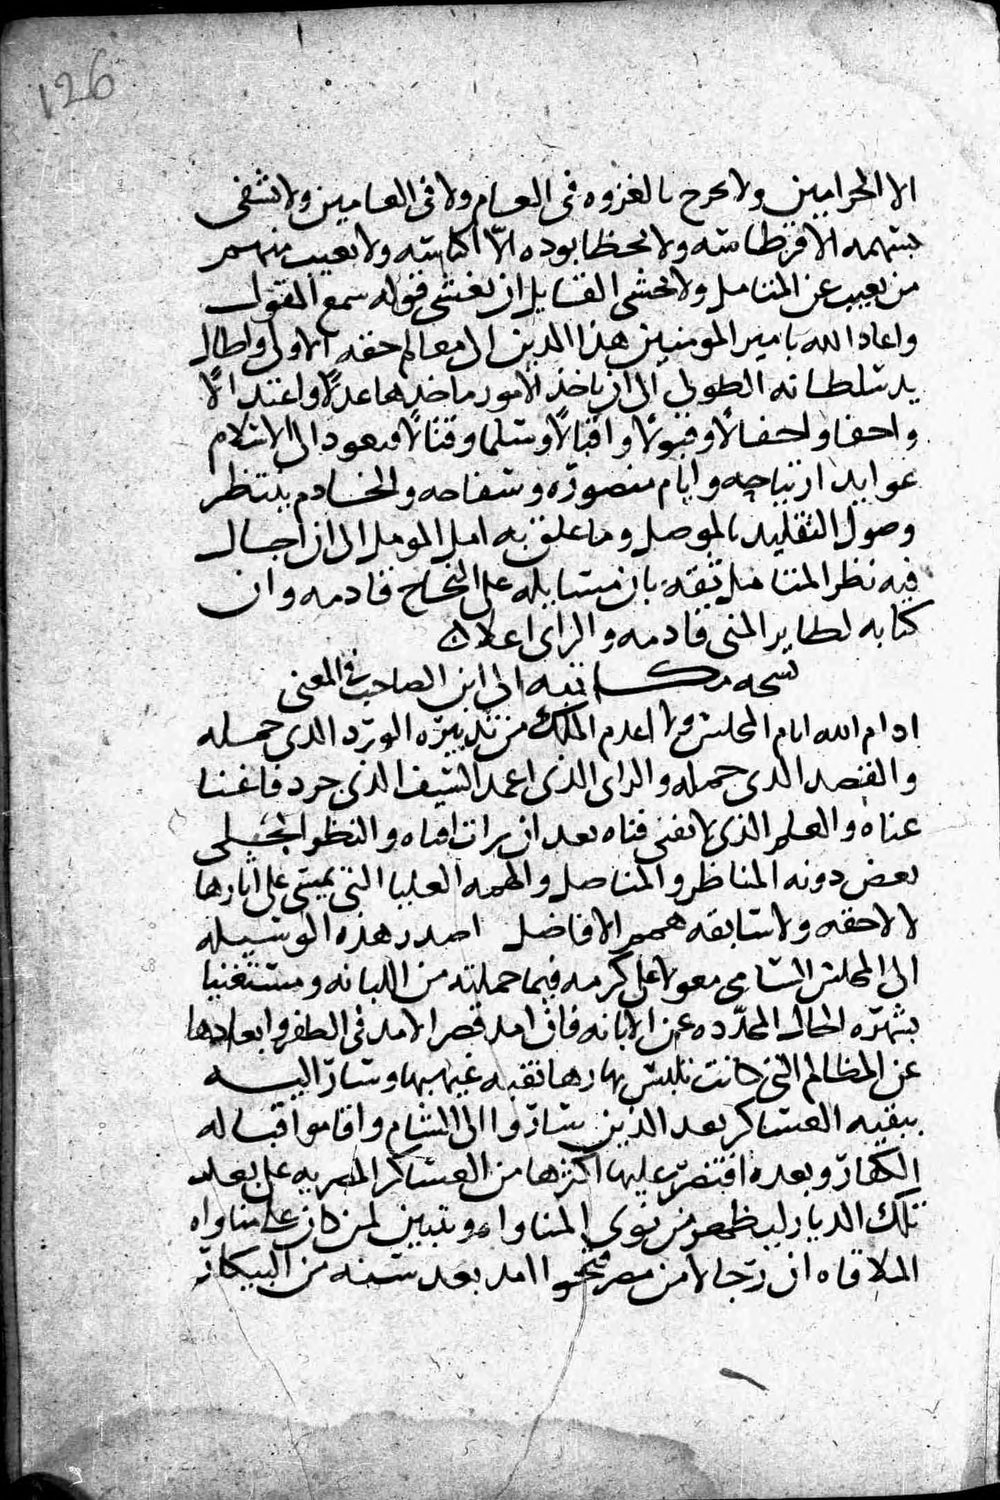 126
الا الحرامين ولا يحرح بالغزوه في العام ولا في العامين ولا تشفى
بسهمه الا قرطاسته ولا يحظا بوده الا اكتابته ولا يغيب منهم
من يغيب عن المتامل ولا يخشى القايل ان يغشى قوله سمع المقول
واعاد الله بامير المومنين هذا الدين الى معالم حقه الاول واطال
يد سلطانه الطولى الى ان ياخذ الامور ماخذها عدلا واعتدالا
واحفا واحفالا وقبولا واقبالا وسلما وقتالا ويعود الى الاسلام
عوايد ارتياحه وايام منصوره وسفاحه والخادم ينتظر
وصول التقليد بالموصل وما علق به امل المومل الى ان اجال
فيه نظر المتامل ثقه بان مسايله على النجاح قادمه وان
كتابه لطاير المنى قادمه والراى اعلاه
نسخه مكاتبه الى ابن الصاحب في المعنى
ادام الله ايام المجلس ولا اعدم الملك من تدبيره الورد الذى حمله
والقصد الذى جمله والراى الذى اغمد السيف الذى جرد فاغنا
عناه والعلم الذى لا يفنى فتاه بعد ان برات افتاه والنظر الجلى
بعض دونه المناظر والمناصل والهمه العليا التى يمشى على اثارها
لا لاحقه ولا سابقه همم الافاضل اصدر هذه الوسيله
الى المجلس السامى معولا على كرمه فيما حملته من اللبانه ومستغنيا
بشهره الحال المحدده عن الابانه فان امد قصر الامد في الظفر وابعادها
عن المظالم التى كانت تلبس نهارها نقبه غيهبها وسار اليه
ببقيه العساكر بعد الذين ساروا الى الشام واقاموا قباله
الكفار وبعده اقتصر عليها اكثرها من العساكر المصريه على بعد
تلك الديار ليظهر من نوى المناواه ويتبين لمن كان على مناواه
الملاقاه ان رجالا من مصر فتحوا امد بعد سنه من البيكار